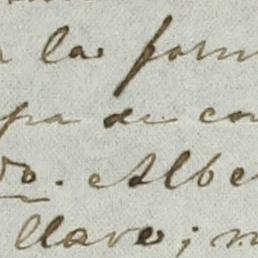 la form
pa de co
do. Albe
llave; m